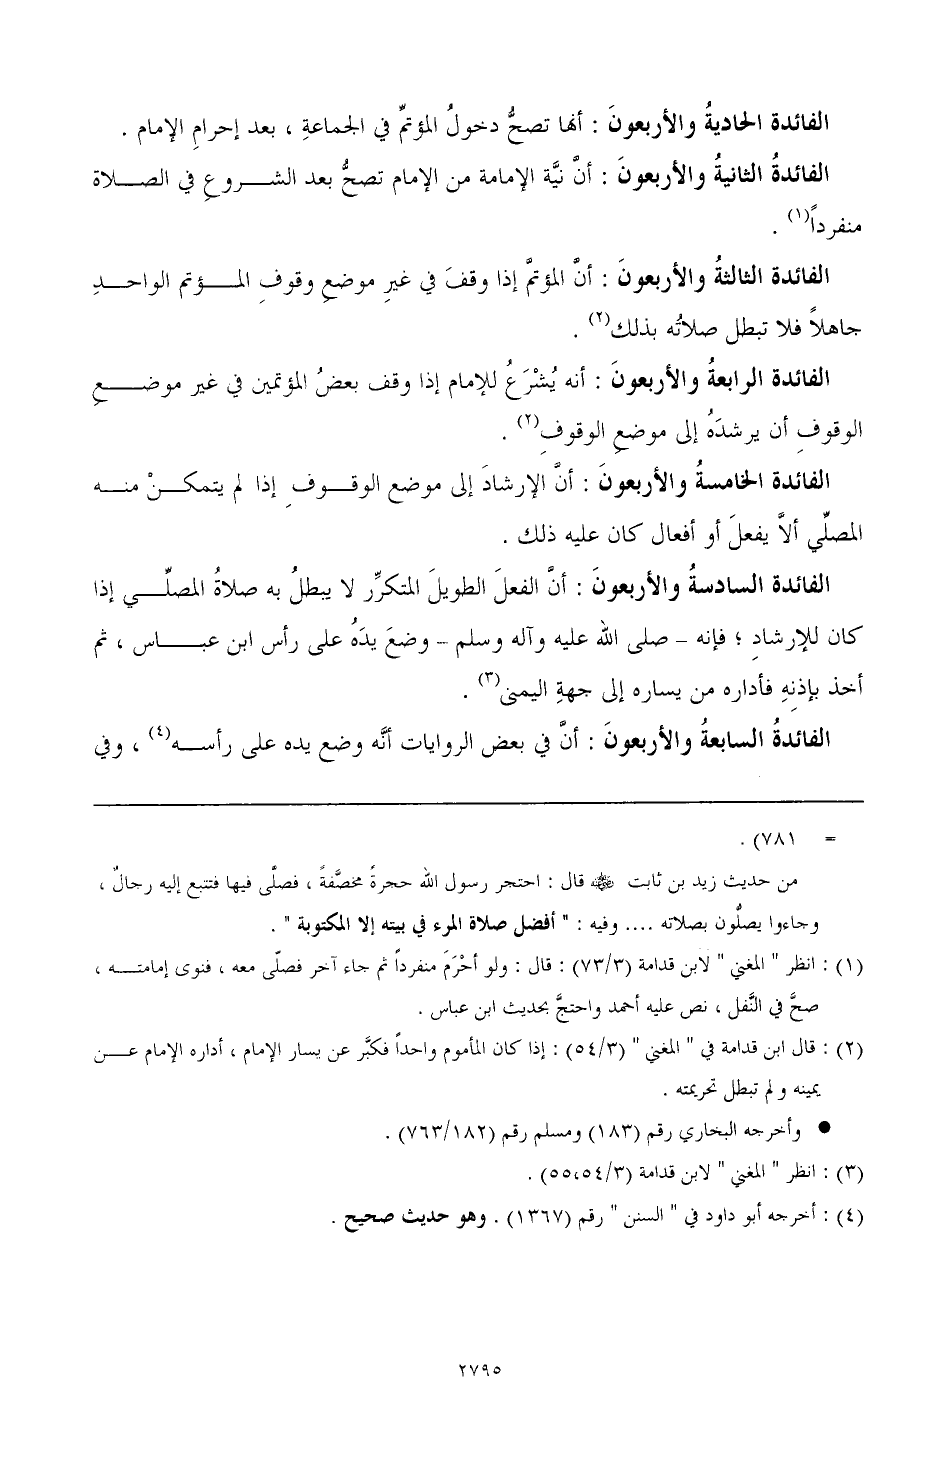 الفائدة الحاديةُ والأربعونَ : أنها تصحُّ دخولُ المؤتمِّ في الجماعةِ ، بعد إحرامِ الإمام .
الفائدةُ الثانيةُ والأربعونَ : أنَّ نيَّة الإمامة من الإمام تصحُّ بعد الشروعِ في الصلاة
منفرداً(١) .
الفائدة الثالثةُ والأربعونَ : أنَّ المؤتمَّ إذا وقفَ في غيرِ موضعِ وقوفِ المؤتم الواحدِ
جاهلاً فلا تبطل صلاتُه بذلك(٢) .
الفائدة الرابعةُ والأربعونَ : أنه يُشْرَعُ للإمام إذا وقف بعضُ المؤتمين في غير موضعِ
الوقوفِ أن يرشدَهُ إلى موضعِ الوقوفِ(٢) .
الفائدة الخامسةُ والأربعونَ : أنَّ الإرشادَ إلى موضع الوقوفِ إذا لم يتمكنْ منه
المصلِّي ألاَّ يفعلَ أو أفعال كان عليه ذلك .
الفائدة السادسةُ والأربعونَ : أنَّ الفعلَ الطويلَ المتكرِّر لا يبطلُ به صلاةُ المصلِّي إذا
كان للإرشادِ ؛ فإنه - صلى الله عليه وآله وسلم - وضعَ يدَهُ على رأس ابن عباس ، ثم
أخذ بإذنِهِ فأداره من يساره إلى جهةِ اليمنى(٣) .
الفائدةُ السابعةُ والأربعونَ : أنَّ في بعض الروايات أنَّه وضع يده على رأسه(٤) ، وفي
= ٧٨١) .
من حديث زيد بن ثابت ﷺ قال : احتجر رسول الله حجرةً مخصَّفةً ، فصلَّى فيها فتتبع إليه رجالٌ ،
وجاءوا يصلُّون بصلاته .... وفيه : " أفضل صلاة المرء في بيته إلا المكتوبة " .
(١) : انظر " المغني " لابن قدامة (٧٣/٣) : قال : ولو أحْرَمَ منفرداً ثم جاء آخر فصلَّى معه ، فنوى إمامته ،
صحَّ في النَّفل ، نص عليه أحمد واحتجَّ بحديث ابن عباس .
(٢) : قال ابن قدامة في " المغني " (٥٤/٣) : إذا كان المأموم واحداً فكبَّر عن يسار الإمام ، أداره الإمام عن
يمينه ولم تبطل تحريمته .
● وأخرجه البخاري رقم (١٨٣) ومسلم رقم (٧٦٣/١٨٢) .
(٣) : انظر " المغني " لابن قدامة (٥٥،٥٤/٣) .
(٤) : أخرجه أبو داود في " السنن " رقم (١٣٦٧) . وهو حديث صحيح .
٢٧٩٥